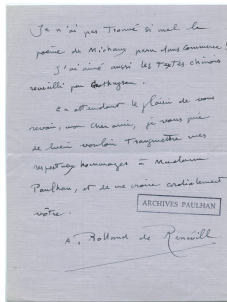 Je n'ai pas trouvé si mal le
poème de Michaux paru dans Commerce !
J'ai aimé aussi les Textes chinois
recueillis par
En attendant le plaisir de vous
revoir, mon cher ami, je vous prie
de bien vouloir transmettre mes
respectueux hommages à Madame
Paulhan, et de me croire cordialement
vôtre.
ARCHIVES PAULHAN
A. Rolland de Renéville